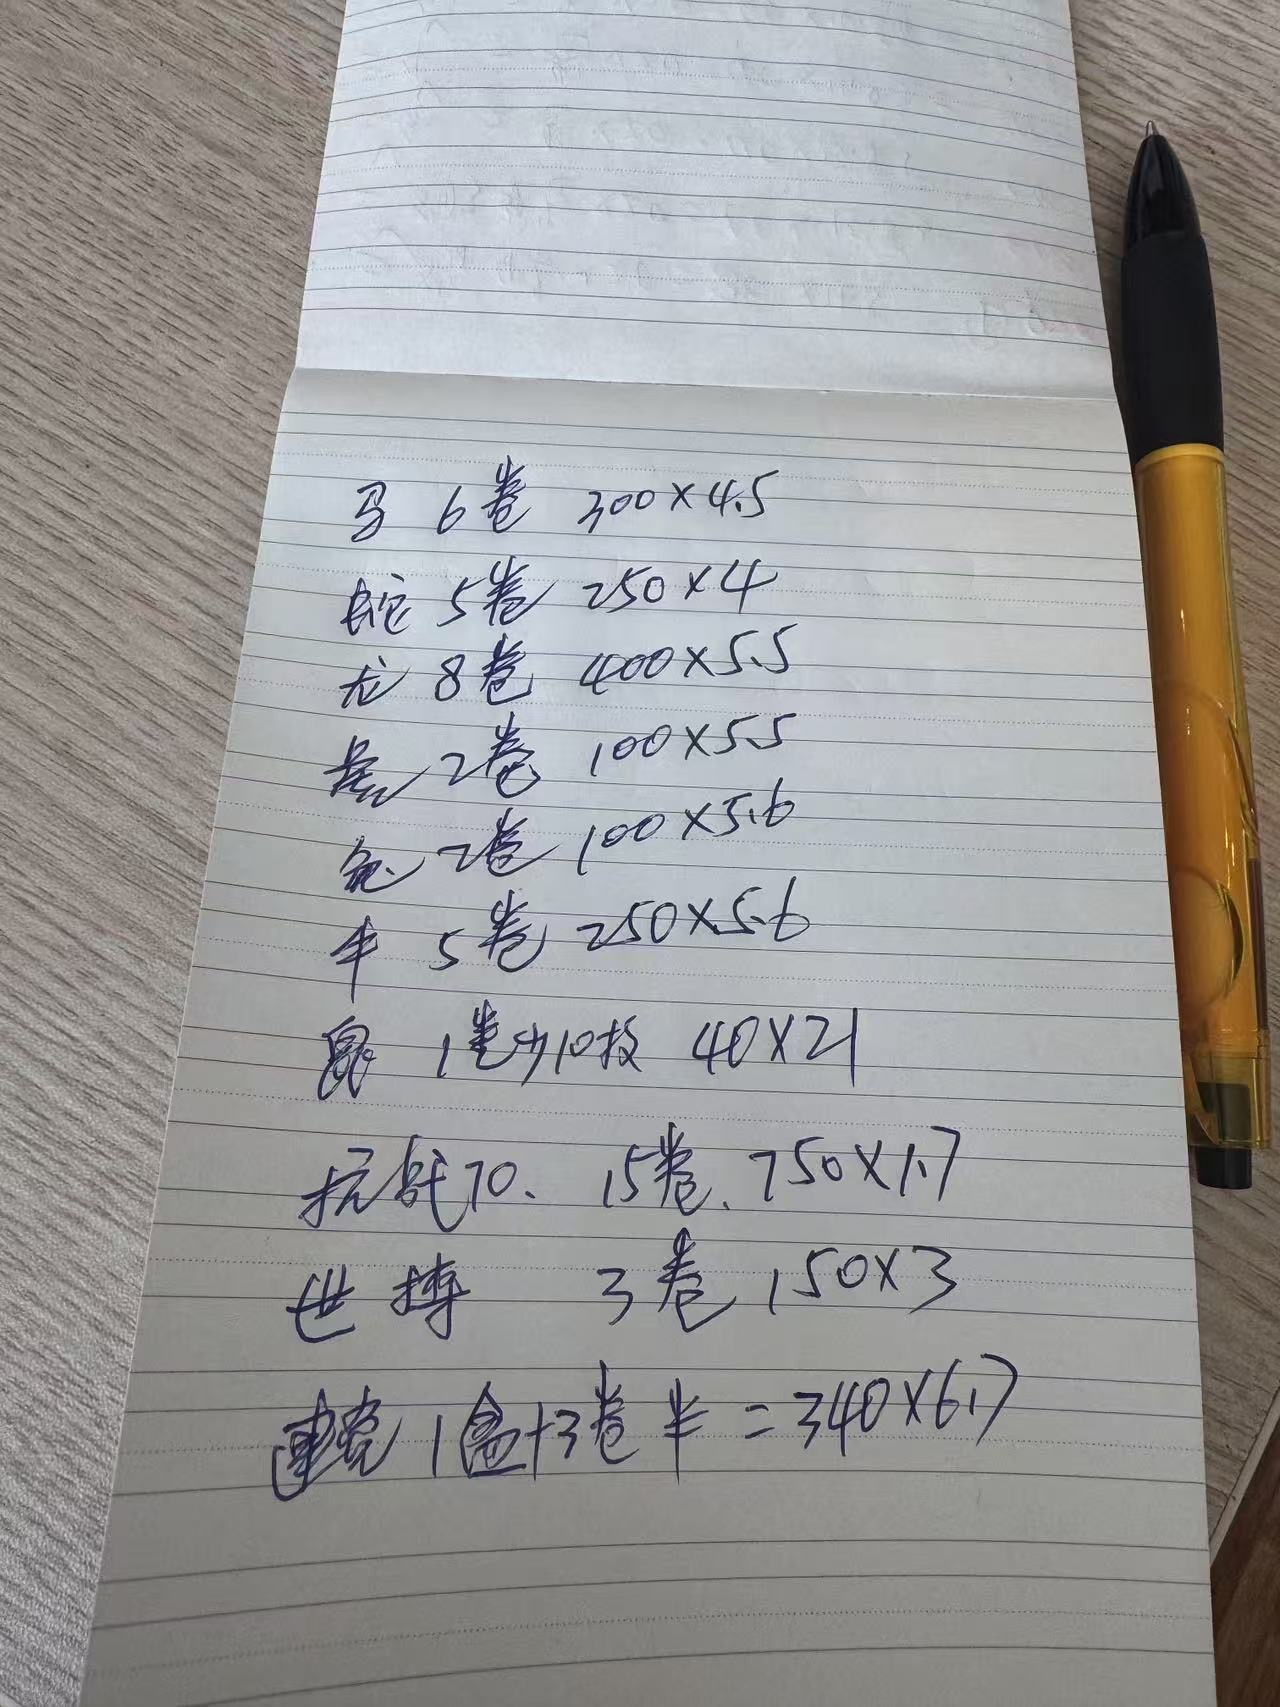 马 6卷 300×4.5
蛇 5卷 250×4
龙 8卷 400×5.5
2卷 100×5.5
兔 2卷 100×5.6
牛 5卷 250×5.6
鼠 1卷少10枚 40×21
抗战70、 15卷、750×1.7
世博 3卷 150×3
1盒+3卷半=340×6.7